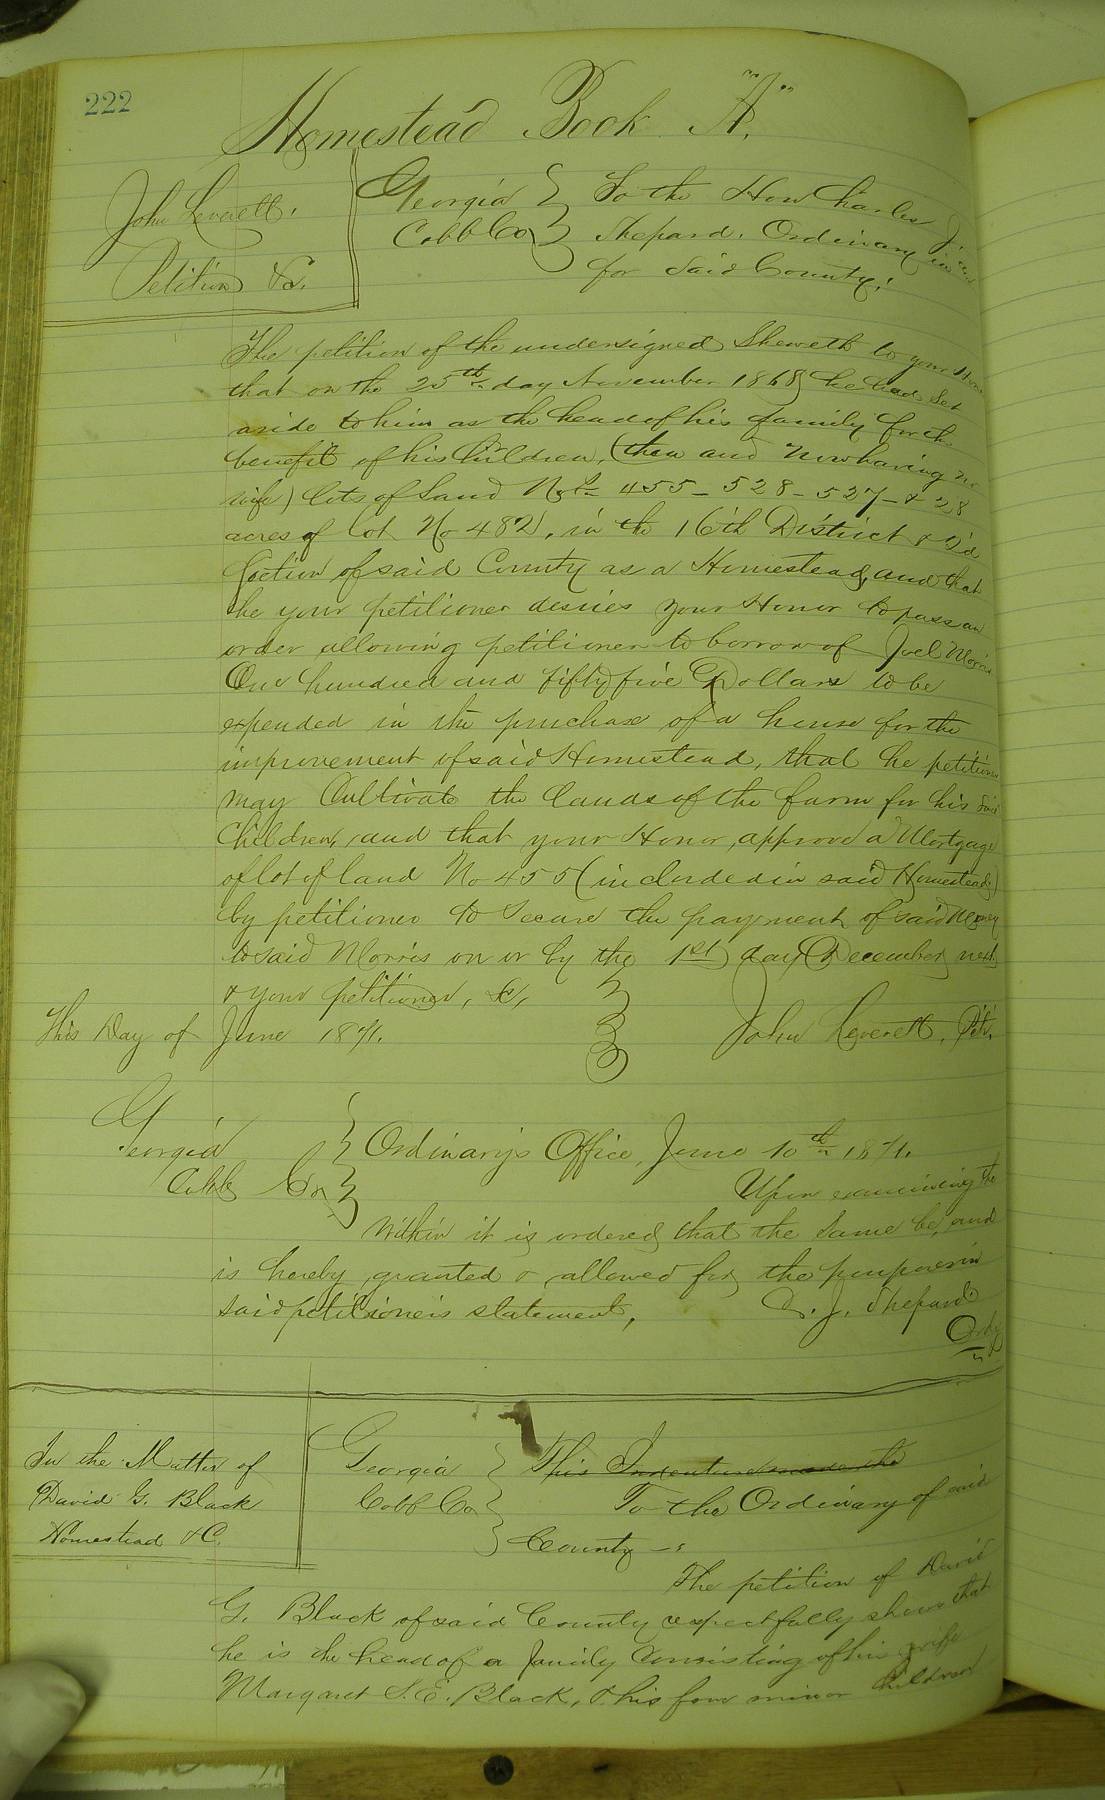 222
Homestead Book "A".
John Leverett.
Petition &c.
Georgia
Cobb Co
To the Hon Charles J.
Shepard. Ordinary in and
for said County.
The petition of the undersigned Sheweth to your Honor
that on the 25th day November 1868 he had Set
aside to him as the head of his family for the
benefit of his Children, (then and now having no
wife) lots of Land Nos 455 - 528 - 527 - & 28
acres of lot No 482, in the 16th District & 2'd
Section of said County as a Homestead, and that
he your petitioner desires your Honor to pass an
order allowing petitioner to borrow of Joel Morris
One hundred and fifty five Dollars to be
expended in the purchase of a horse for the
improvement of said Homestead, that he petitioner
may Cultivate the lands of the farm for his said
Children, and that your Honor, approve a Mortgage
of lot of land No 455 (included in said Homestead)
by petitioner to secure the payment of said Money
to said Morris on or by the 1st day December next
& your petitioner, &c,
This Day of June 1871.
John Leverett, Pet'r.
Georgia
Cobb Co
Ordinary's Office, June 10th 1871.
Upon examining the
within it is ordered that the Same be, and
is hereby granted & allowed for the purposes in
said petitioners statement,
C. J. Shepard
Ordy
In the Matter of
David G. Black
Homestead &C.
Georgia
Cobb Co
This Indenture made the
To the Ordinary of said
County -:
The petition of David
G. Black of said County respectfully shows that
he is the head of a family Consisting of his wife
Margaret S. E. Black, & his four minor Children